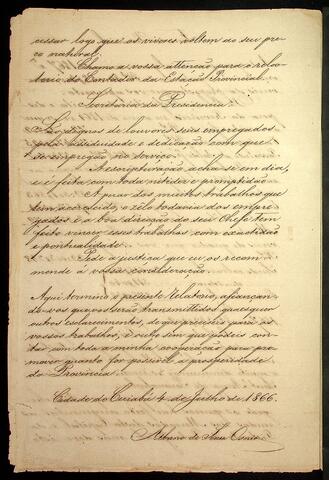 cessar logo que os viveres voltem ao seu pre-
ço natural.
Chamo a vossa attenção para o relato-
rio do Contador da Estação Provincial.
Secretaria da Presidencia.
São dignos de louvores seus empregados
pela assiduidade e dedicação com que
se empregão no serviço.
A escripturação acha-se em dia,
e é feita com toda nitidez e promptidão.
A par dos muitos trabalhos que
tem accrescido, o zelo todavia dos empre-
gados e a boa direcção do seu Chefe tem
feito vencer esses trabalhos com exactidão
e pontualidade.
Pede a justiça que eu os recom-
mende á vossa consideração.
Aqui termino o presente Relatorio, afiançan-
do-vos que vos serão transmittidos quaesquer
outros esclarecimentos, de que preciseis para os
vossos trabalhos, e outro sim que podeis con-
tar com toda a minha cooperação para pro-
mover quanto for possivel a prosperidade
da Provincia.
Cidade do Cuiabá 4 de Julho de 1866.
Albano de Souza Osorio